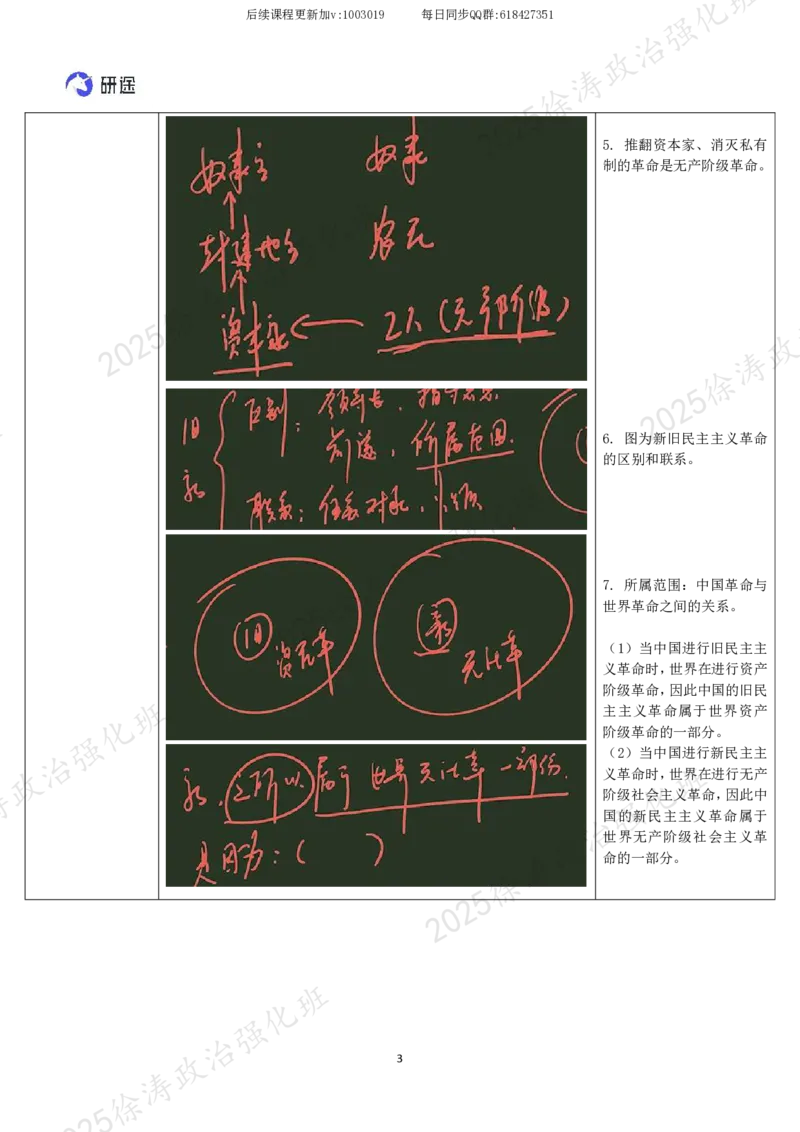 后续课程更新加v:1003019 每日同步QQ群:618427351
研途
奴隶主 奴隶
封建地主 农民
资本家 工人（无产阶级）
5. 推翻资本家、消灭私有
制的革命是无产阶级革命。
旧
新
区别：领导者，指导思想
前途，所属范围.
联系：任务 对象，
6. 图为新旧民主主义革命
的区别和联系。
旧 资产革
新 无社革
7. 所属范围：中国革命与
世界革命之间的关系。
（1）当中国进行旧民主主
义革命时，世界在进行资产
阶级革命，因此中国的旧民
主主义革命属于世界资产
阶级革命的一部分。
（2）当中国进行新民主主
义革命时，世界在进行无产
阶级社会主义革命，因此中
国的新民主主义革命属于
世界无产阶级社会主义革
命的一部分。
新，之所以属于世界无社革一部份.
是因为：（ ）
3
2025徐涛政治强化班